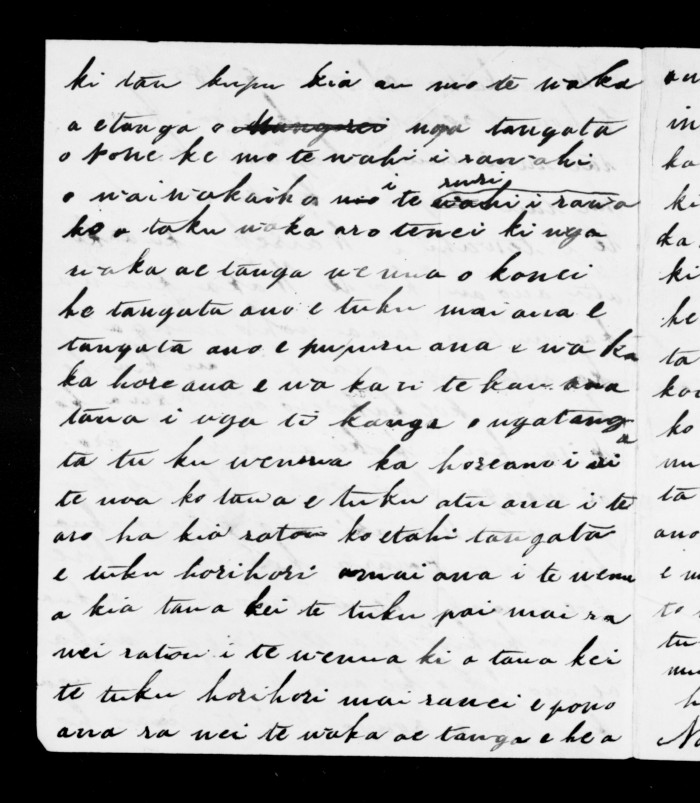 ki tau kupu kia au mo te waka
a etanga o Mangarei nga tangata
o None ke mo te wahi i rawahi
o waiwakaiha mo i te wahi ruri i rawa
ko a taku waka aro tenei ki nga
waka ae tanga wenua o konei
he tangata ano e tuku mai ana e
tangata ano e pupuru ana e wa ka
ka hore ana e wa ka ri te kau ana
tana i nga ti kanga o nga tanga
ta tu ku wenua ka horeano i ri
te noa ko tana e tuku atu ana i te
aro ha kia ratou ko etahi tangata
e tuku horihori mai ana i te wenu
a kia tana kei te tuku pai mai ra
nei ratou i te wenua ki a tana kei
te tuku horihori mai ranei e pono
ana ra nei te waka ae tanga e he a
an
in
ka
ki
ka
ki
he
ta
ko
nu
ta
ano
tu